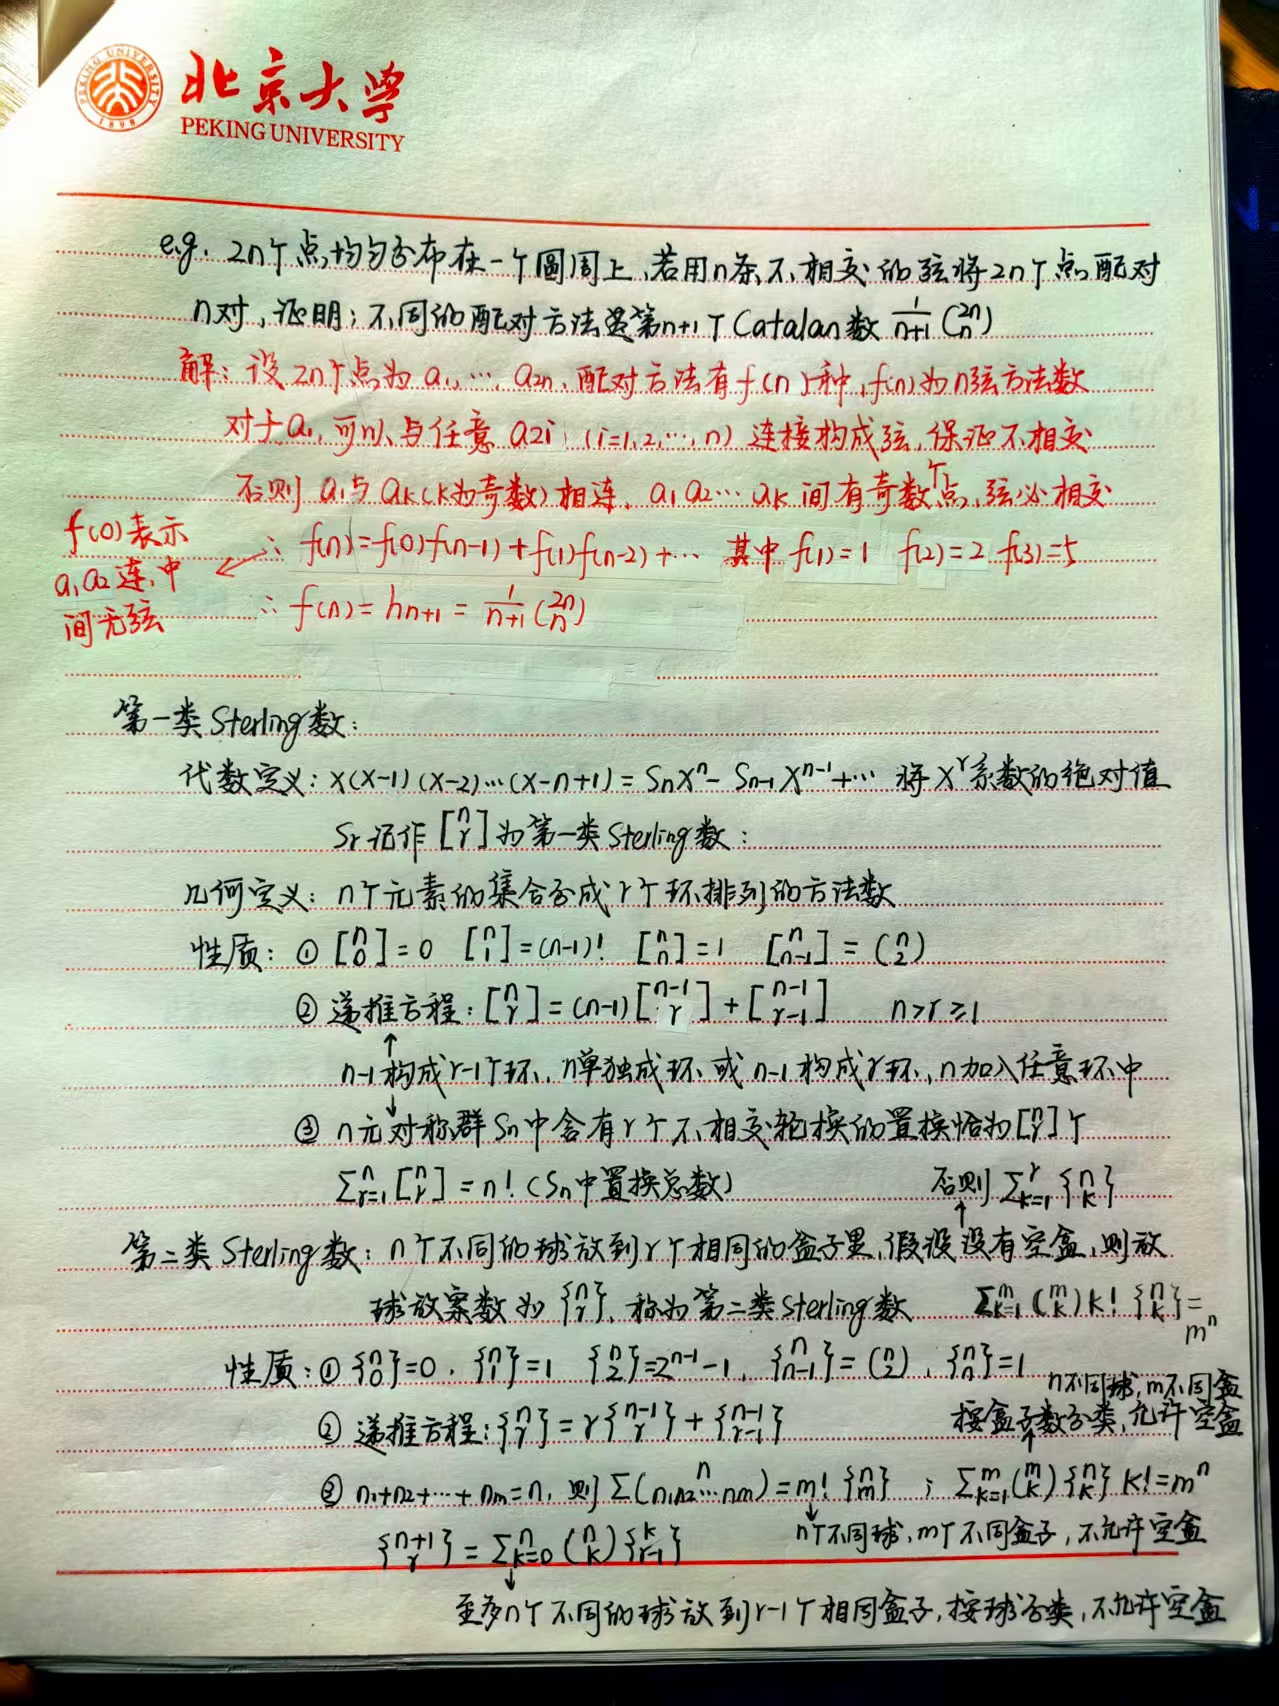 北京大学
PEKING UNIVERSITY
PEKING UNIVERSITY
1898
e.g. 2n个点均匀分布在一个圆周上,若用n条不相交的弦将2n个点配对
n对,证明:不同的配对方法是第n+1个Catalan数 1/(n+1) (2n n)
解:设2n个点为a₁,…,a₂ₙ,配对方法有f(n)种,f(n)为n弦方法数
对于a₁,可以与任意a₂ᵢ (i=1,2,…,n) 连接构成弦,保证不相交
否则a₁与aₖ(k为奇数)相连,a₁a₂…aₖ间有奇数个点,弦必相交
f(0)表示
a₁a₂连,中
间无弦
∴ f(n)=f(0)f(n-1)+f(1)f(n-2)+… 其中f(1)=1 f(2)=2 f(3)=5
∴ f(n)=hₙ₊₁ = 1/(n+1) (2n n)
第一类Sterling数:
代数定义:x(x-1)(x-2)…(x-n+1)=Sₙxⁿ-Sₙ₋₁xⁿ⁻¹+… 将xʳ系数的绝对值
Sr记作[n r]为第一类Sterling数:
几何定义:n个元素的集合分成r个环排列的方法数
性质:① [n 0]=0 [n 1]=(n-1)! [n n]=1 [n n-1]=(n 2)
② 递推方程:[n r]=(n-1)[n-1 r]+[n-1 r-1] n>r≥1
↑
n-1构成r-1个环,n单独成环或n-1构成r环,n加入任意环中
↓
③ n元对称群Sn中含有r个不相交轮换的置换恰为[n r]个
Σⁿᵣ₌₁[n r]=n!(Sn中置换总数) 否则Σʳₖ₌₁{n k}
↑
第二类Sterling数:n个不同的球放到r个相同的盒子里,假设没有空盒,则放
球放案数为{n r},称为第二类Sterling数 Σᵐₖ₌₁(m k)k!{n k}=
mⁿ
性质:① {n 0}=0, {n 1}=1 {n 2}=2ⁿ⁻¹-1, {n n-1}=(n 2), {n n}=1
n不同球,m不同盒
按盒子数分类,允许空盒
② 递推方程:{n r}=r{n-1 r}+{n-1 r-1}
↑
③ n₁+n₂+…+nₘ=n,则Σ(n n₁n₂…nm)=m!{n m} ; Σᵐₖ₌₁(m k){n k}k!=mⁿ
↓
n个不同球,m个不同盒子,不允许空盒
{n+1 r}=Σⁿₖ₌₀(n k){k r-1}
↓
至多n个不同的球放到r-1个相同盒子,按球分类,不允许空盒